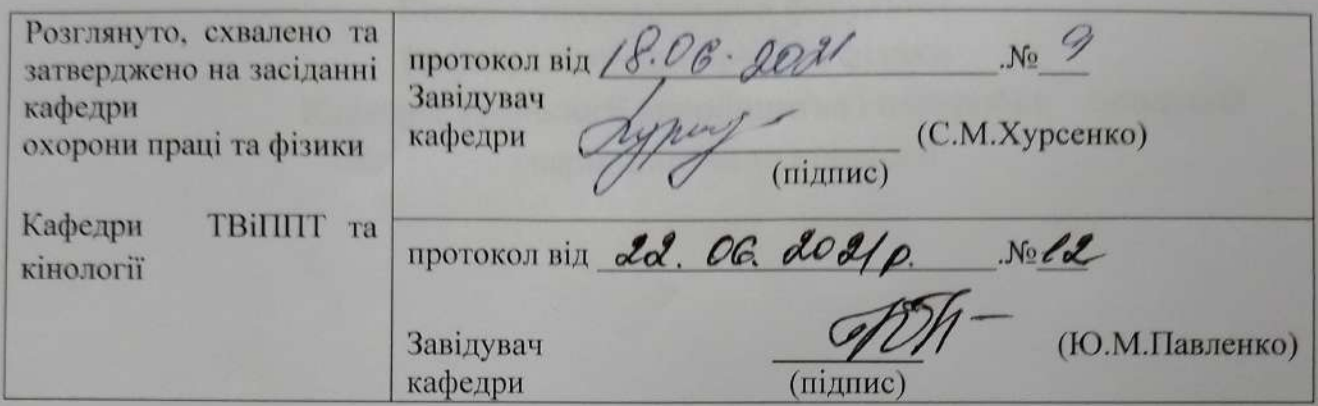 Розглянуто, схвалено та
затверджено на засіданні
кафедри
охорони праці та фізики
Кафедри ТВіППТ та
кінології
протокол від 18.06.2021 .№ 9
Завідувач
кафедри (С.М.Хурсенко)
(підпис)
протокол від 22. 06. 2021р. .№12
Завідувач (Ю.М.Павленко)
кафедри (підпис)